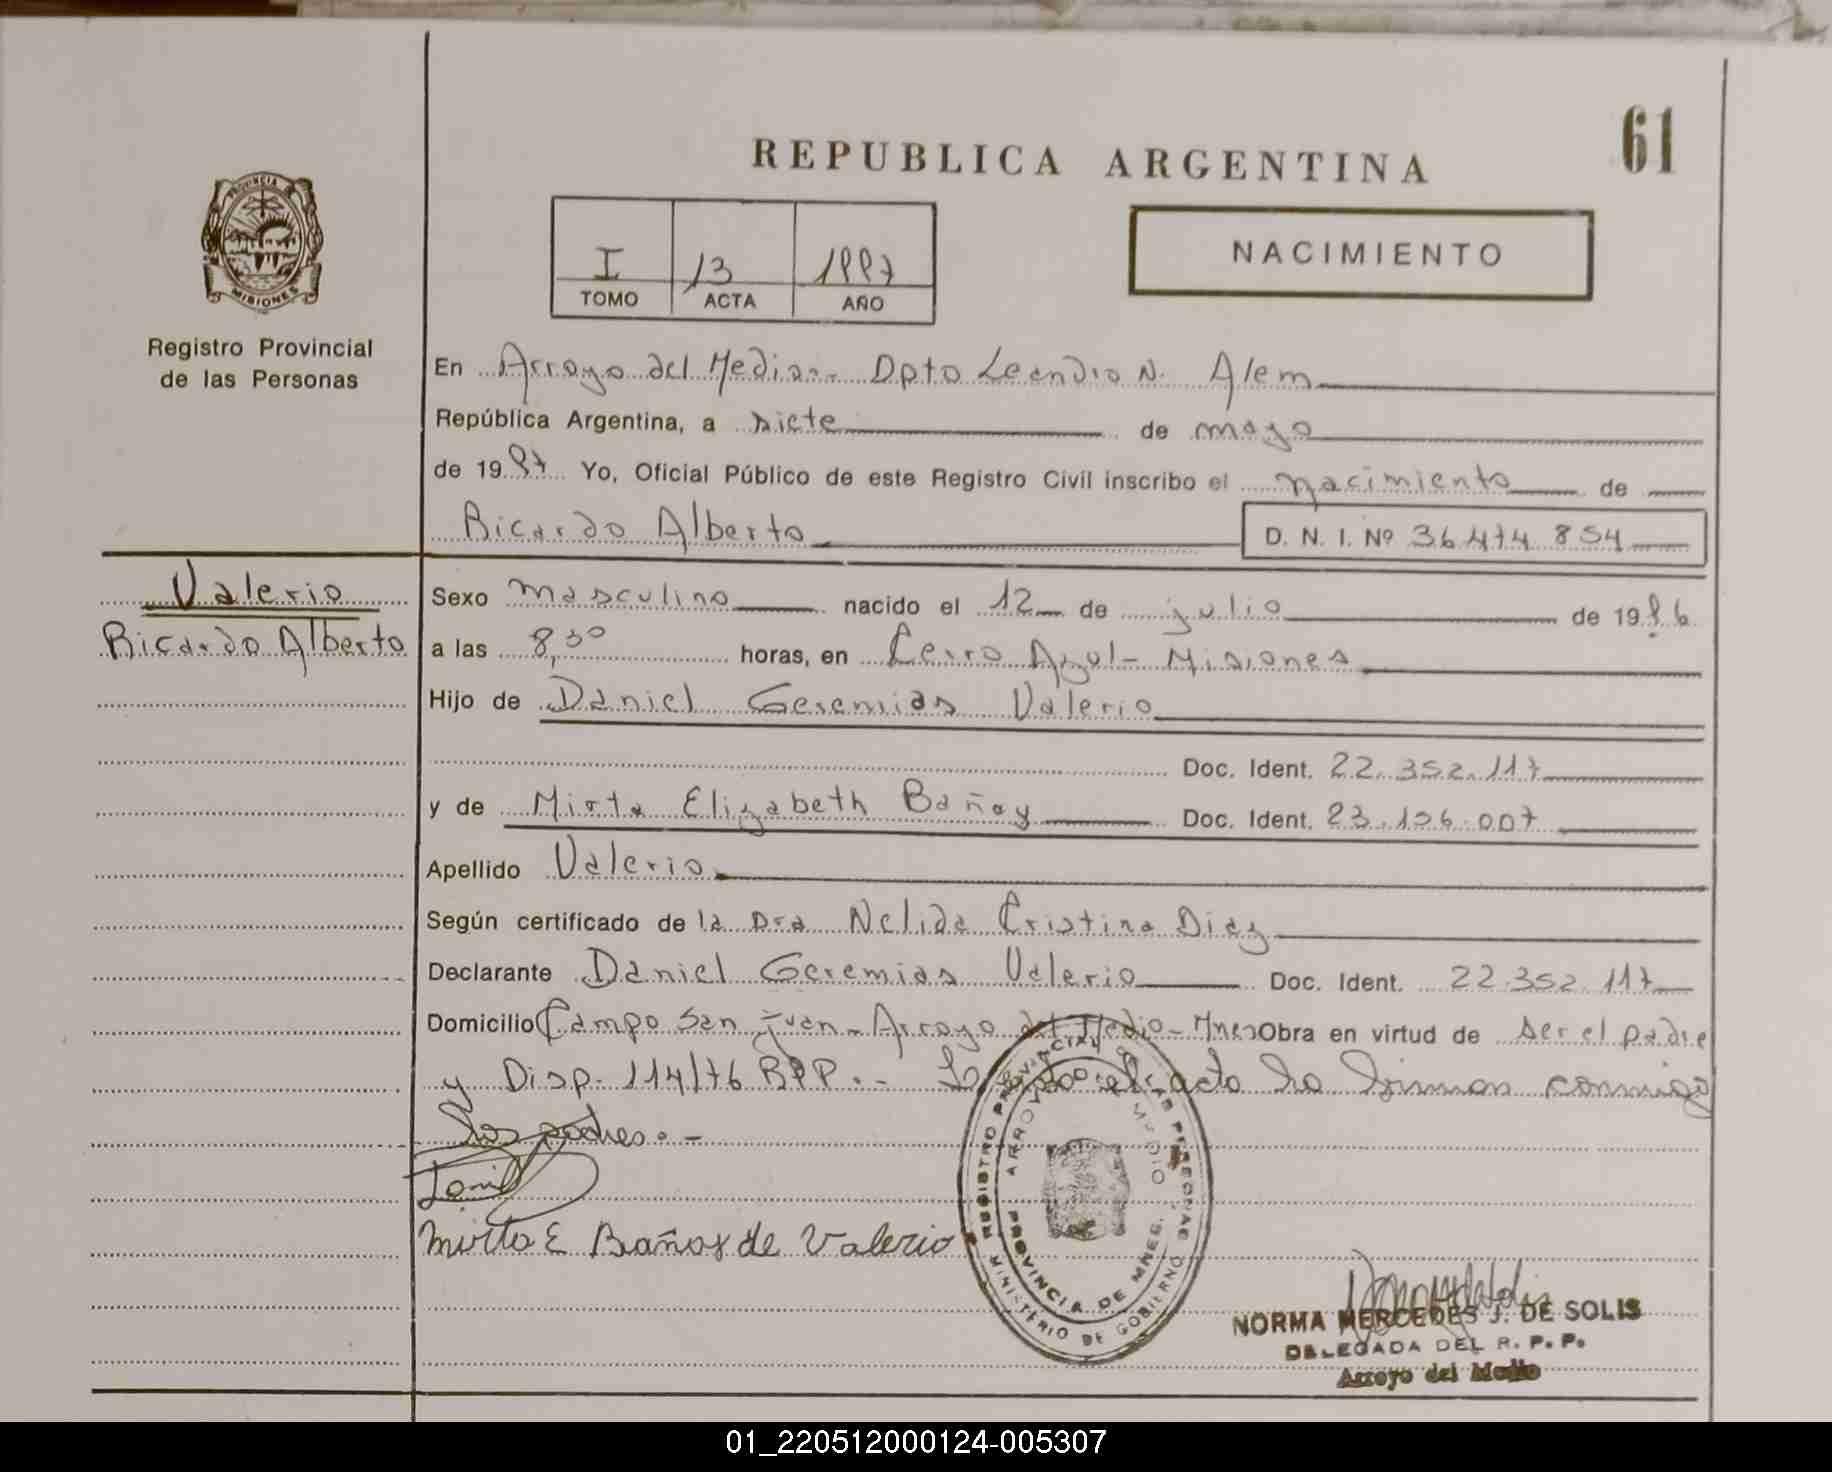 61
REPUBLICA ARGENTINA
PROVINCIA
MISIONES
Registro Provincial
de las Personas
I 13 1987
TOMO ACTA AÑO
NACIMIENTO
En Arroyo del Medio.- Dpto Leandro N. Alem
República Argentina, a siete de mayo
de 1987 Yo, Oficial Público de este Registro Civil inscribo el nacimiento de
Ricardo Alberto D. N. I. Nº 36.474.854
Valerio
Ricardo Alberto
Sexo masculino nacido el 12 de julio de 1986
a las 8,30 horas, en Cerro Azul - Misiones
Hijo de Daniel Geremias Valerio
Doc. Ident. 22.352.117
y de Mirta Elizabeth Bañay Doc. Ident. 23.156.007
Apellido Valerio
Según certificado de la Dra Nelida Cristina Diaz
Declarante Daniel Geremias Valerio Doc. Ident. 22.352.117
Domicilio Campo San Juan - Arroyo del Medio - Mnes Obra en virtud de ser el padre
y Disp. 114/76 RPP.- el acto lo firman conmigo
los padres.-
Mirta E Bañay de Valerio
REGISTRO PROVINCIAL DE LAS PERSONAS
ARROYO DEL MEDIO
PROVINCIA DE MNES.
MINISTERIO DE GOBIERNO
NORMA MERCEDES J. DE SOLIS
DELEGADA DEL R. P. P.
Arroyo del Medio
01_220512000124-005307